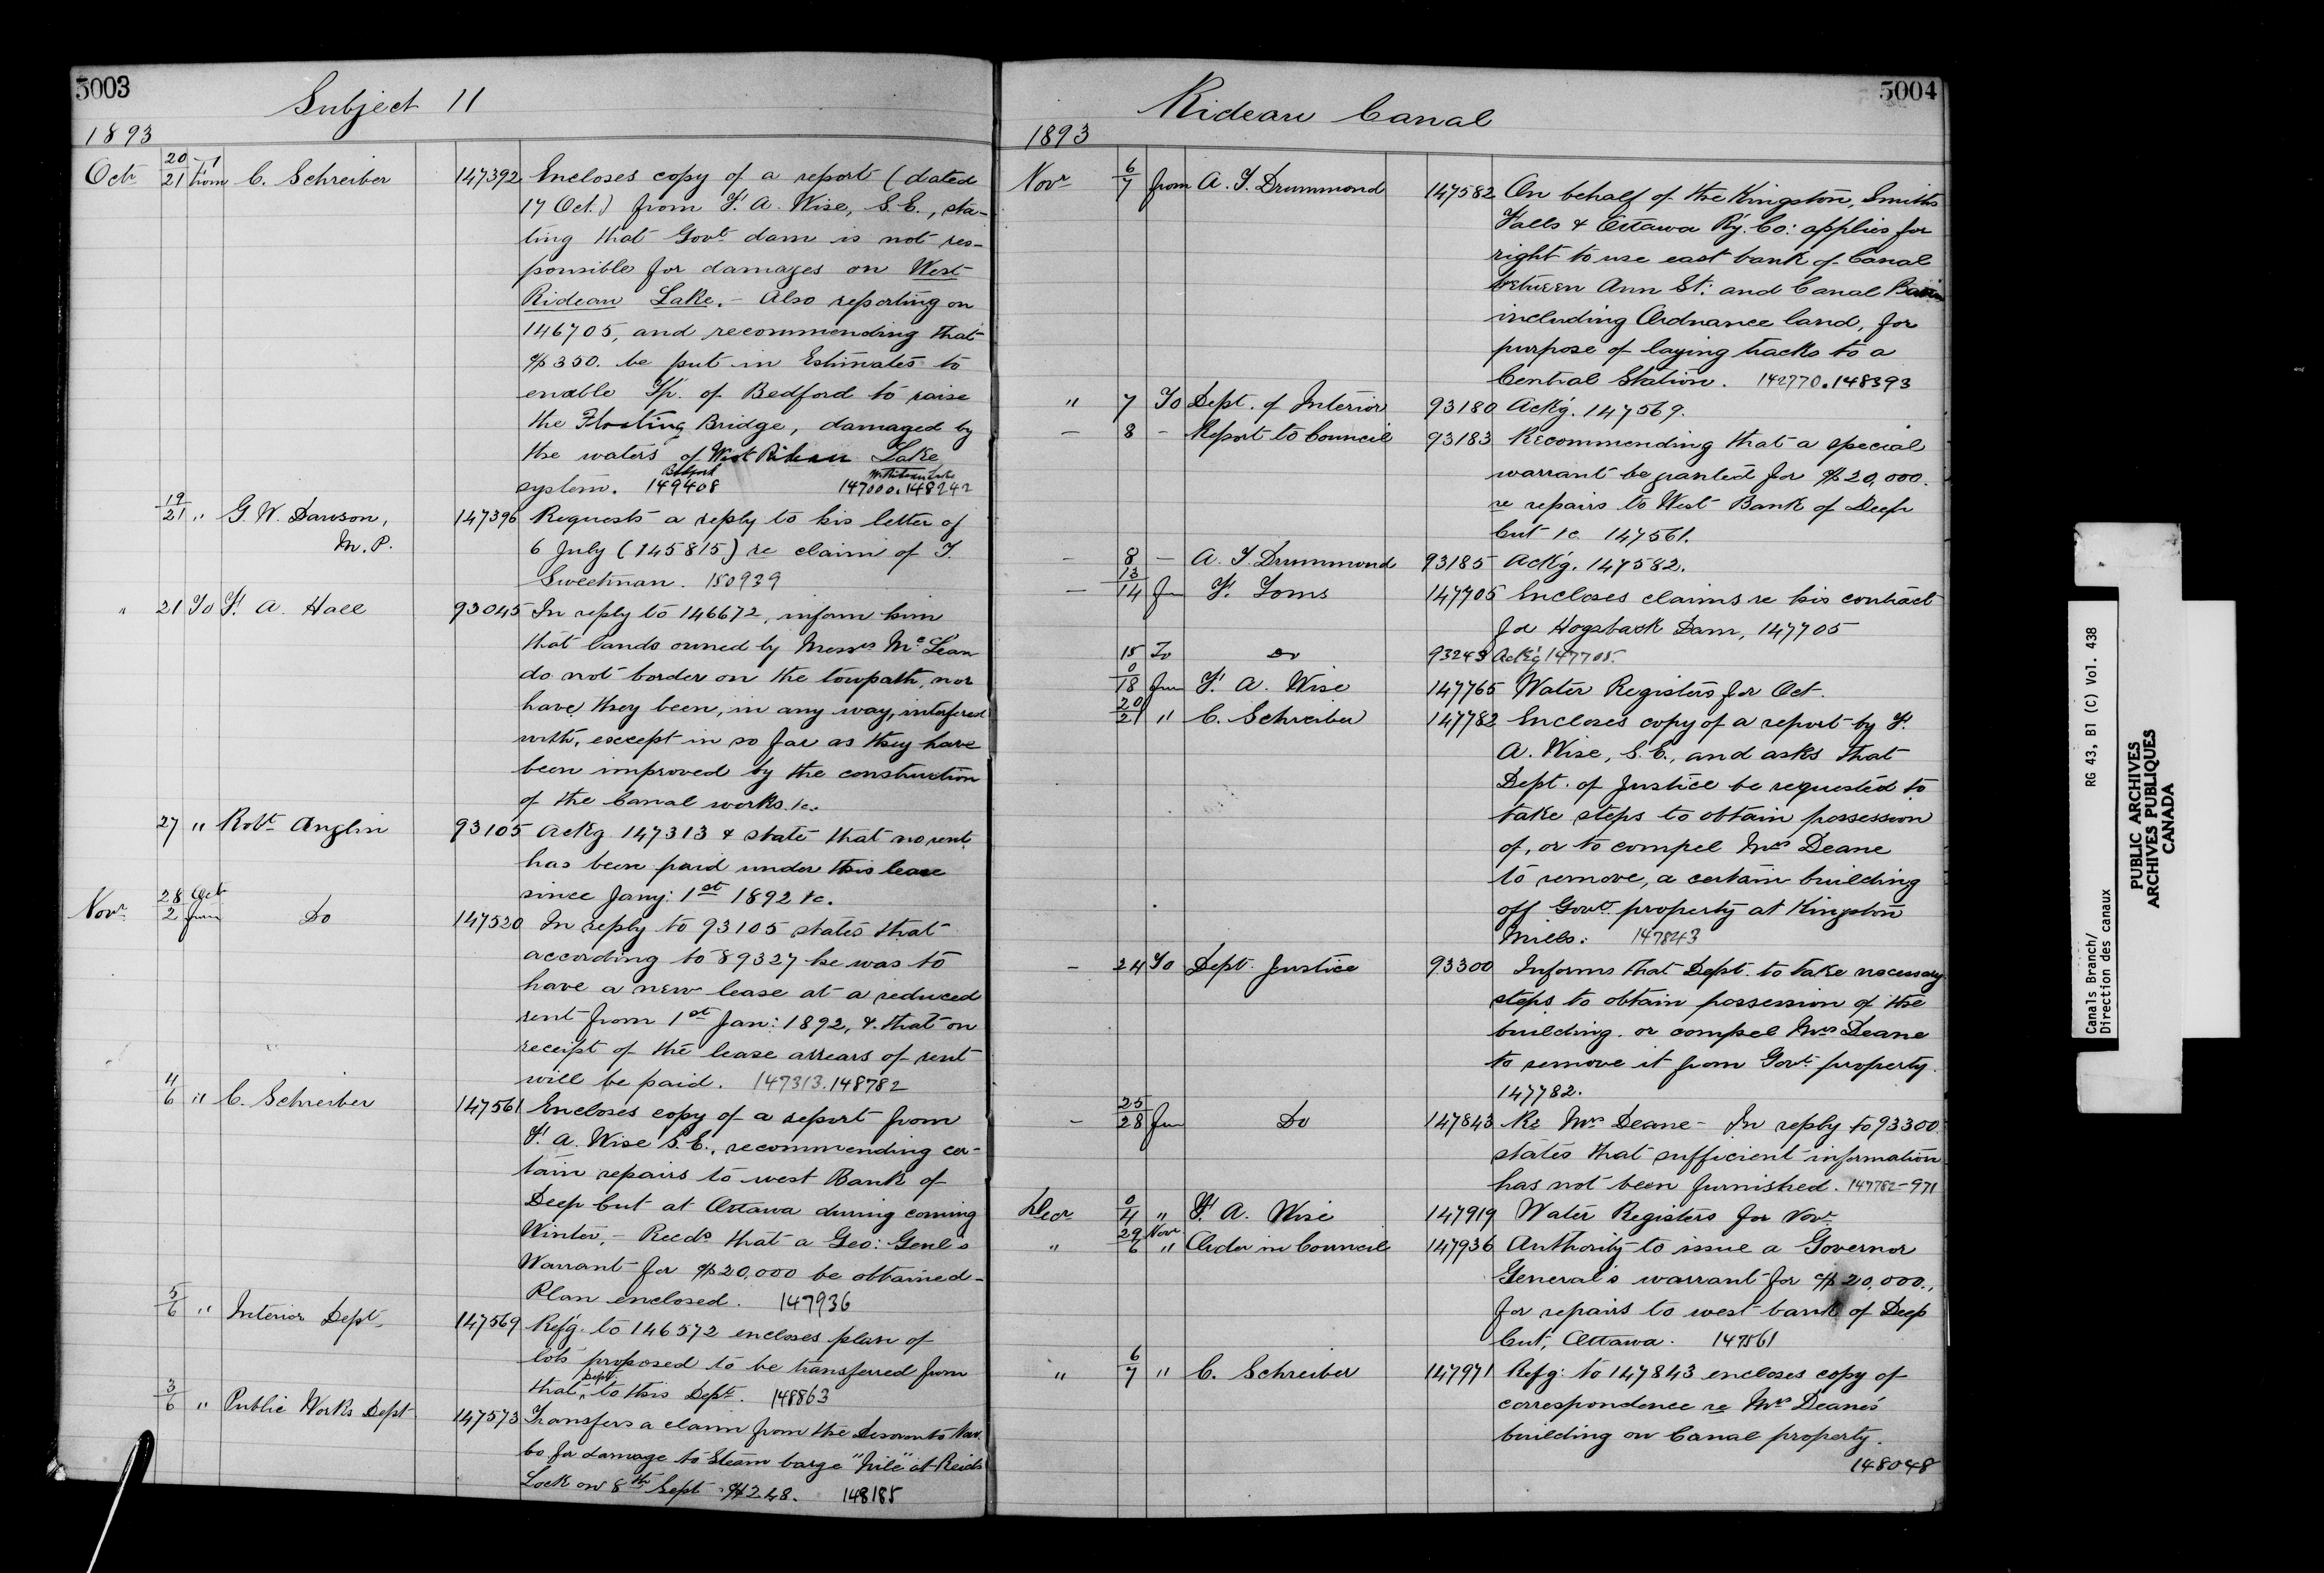 5003
Subject 11
1893
Octr 20/21 from C. Schreiber 147392 Encloses copy of a report (dated
17 Oct.) from F. A. Wise, S.E., sta-
ting that Govt dam is not res-
ponsible for damages on West
Rideau Lake. – Also reporting on
146705, and recommending that
$350. be put in Estimates to
enable Tp. of Bedford to raise
the Floating Bridge, damaged by
the waters of West Rideau Lake
Bedford W. Rideau Lake
system. 149408 147000.148242
19/21 " G. W. Dawson, 147396 Requests a reply to his letter of
M.P. 6 July (145815) re claim of T.
Sweetman. 150939
" 21 To F. A. Hall 93045 In reply to 146672, inform him
that lands owned by Messrs McLean
do not border on the towpath, nor
have they been, in any way, interfered
with, except in so far as they have
been improved by the construction
of the Canal works. &c.
27 " Robt Anglin 93105 Ackg 147313 & state that no rent
has been paid under this lease
since Jany: 1st 1892 &c.
Novr 28 Oct/2 from Do 147520 In reply to 93105 states that
according to 89327 he was to
have a new lease at a reduced
rent from 1st Jan: 1892, & that on
receipt of the lease arrears of rent
will be paid. 147313.148782
4/6 " C. Schreiber 147561 Encloses copy of a report from
F. A. Wise S.E., recommending cer-
tain repairs to west Bank of
Deep Cut at Ottawa during coming
Winter, – Recds that a Gov: Genl's
Warrant for $20,000 be obtained –
Plan enclosed. 147936
5/6 " Interior Dept 147569 Refg. to 146572 encloses plan of
lots proposed to be transferred from
Dept
that ^ to this Dept. 148863
3/6 " Public Works Dept 147573 Transfers a claim from the Deseronto Nav.
Co for damage to Steam barge "Nile" at Reids
Lock on 8th Sept $248. 148185
5004
Rideau Canal
1893
Novr 6/7 from A. T. Drummond 147582 On behalf of the Kingston, Smiths
Falls & Ottawa Ry. Co: applies for
right to use east bank of Canal
between Ann St: and Canal Basin
including Ordnance land, for
purpose of laying tracks to a
Central Station. 142770.148393
" 7 To Dept. of Interior 93180 Ackg. 147569.
– 8 – Report to Council 93183 Recommending that a special
warrant be granted for $20,000.
re repairs to West Bank of Deep
Cut &c 147561.
– 8 – A. T. Drummond 93185 Ackg. 147582.
– 13/14 fm F. Toms 147705 Encloses claims re his contract
for Hogsback Dam, 147705
15 To Do 93243 Ackg 147705.
0/18 fm F. A. Wise 147765 Water Registers for Oct.
20/21 " C. Schreiber 147782 Encloses copy of a report by F.
A. Wise, S.E., and asks that
Dept. of Justice be requested to
take steps to obtain possession
of, or to compel Mrs Deane
to remove, a certain building
off Govt property at Kingston
Mills. 147843
– 24 To Dept. Justice 93300 Informs that Dept. to take necessary
steps to obtain possession of the
building or compel Mrs Deane
to remove it from Govt property.
147782.
– 25/28 fm Do 147843 Re Mrs Deane – In reply to 93300
states that sufficient information
has not been furnished. 147782–971
Decr 0/4 " F. A. Wise 147919 Water Registers for Novr
" 29 Novr/6 " Order in Council 147936 Authority to issue a Governor
General's warrant for $20,000.,
for repairs to west bank of Deep
Cut, Ottawa. 147561
" 6/7 " C. Schreiber 147971 Refg: to 147843 encloses copy of
correspondence re Mrs Deane's
building on Canal property.
148048
Canals Branch/ RG 43, B1 (C) Vol. 438
Direction des canaux
PUBLIC ARCHIVES
ARCHIVES PUBLIQUES
CANADA